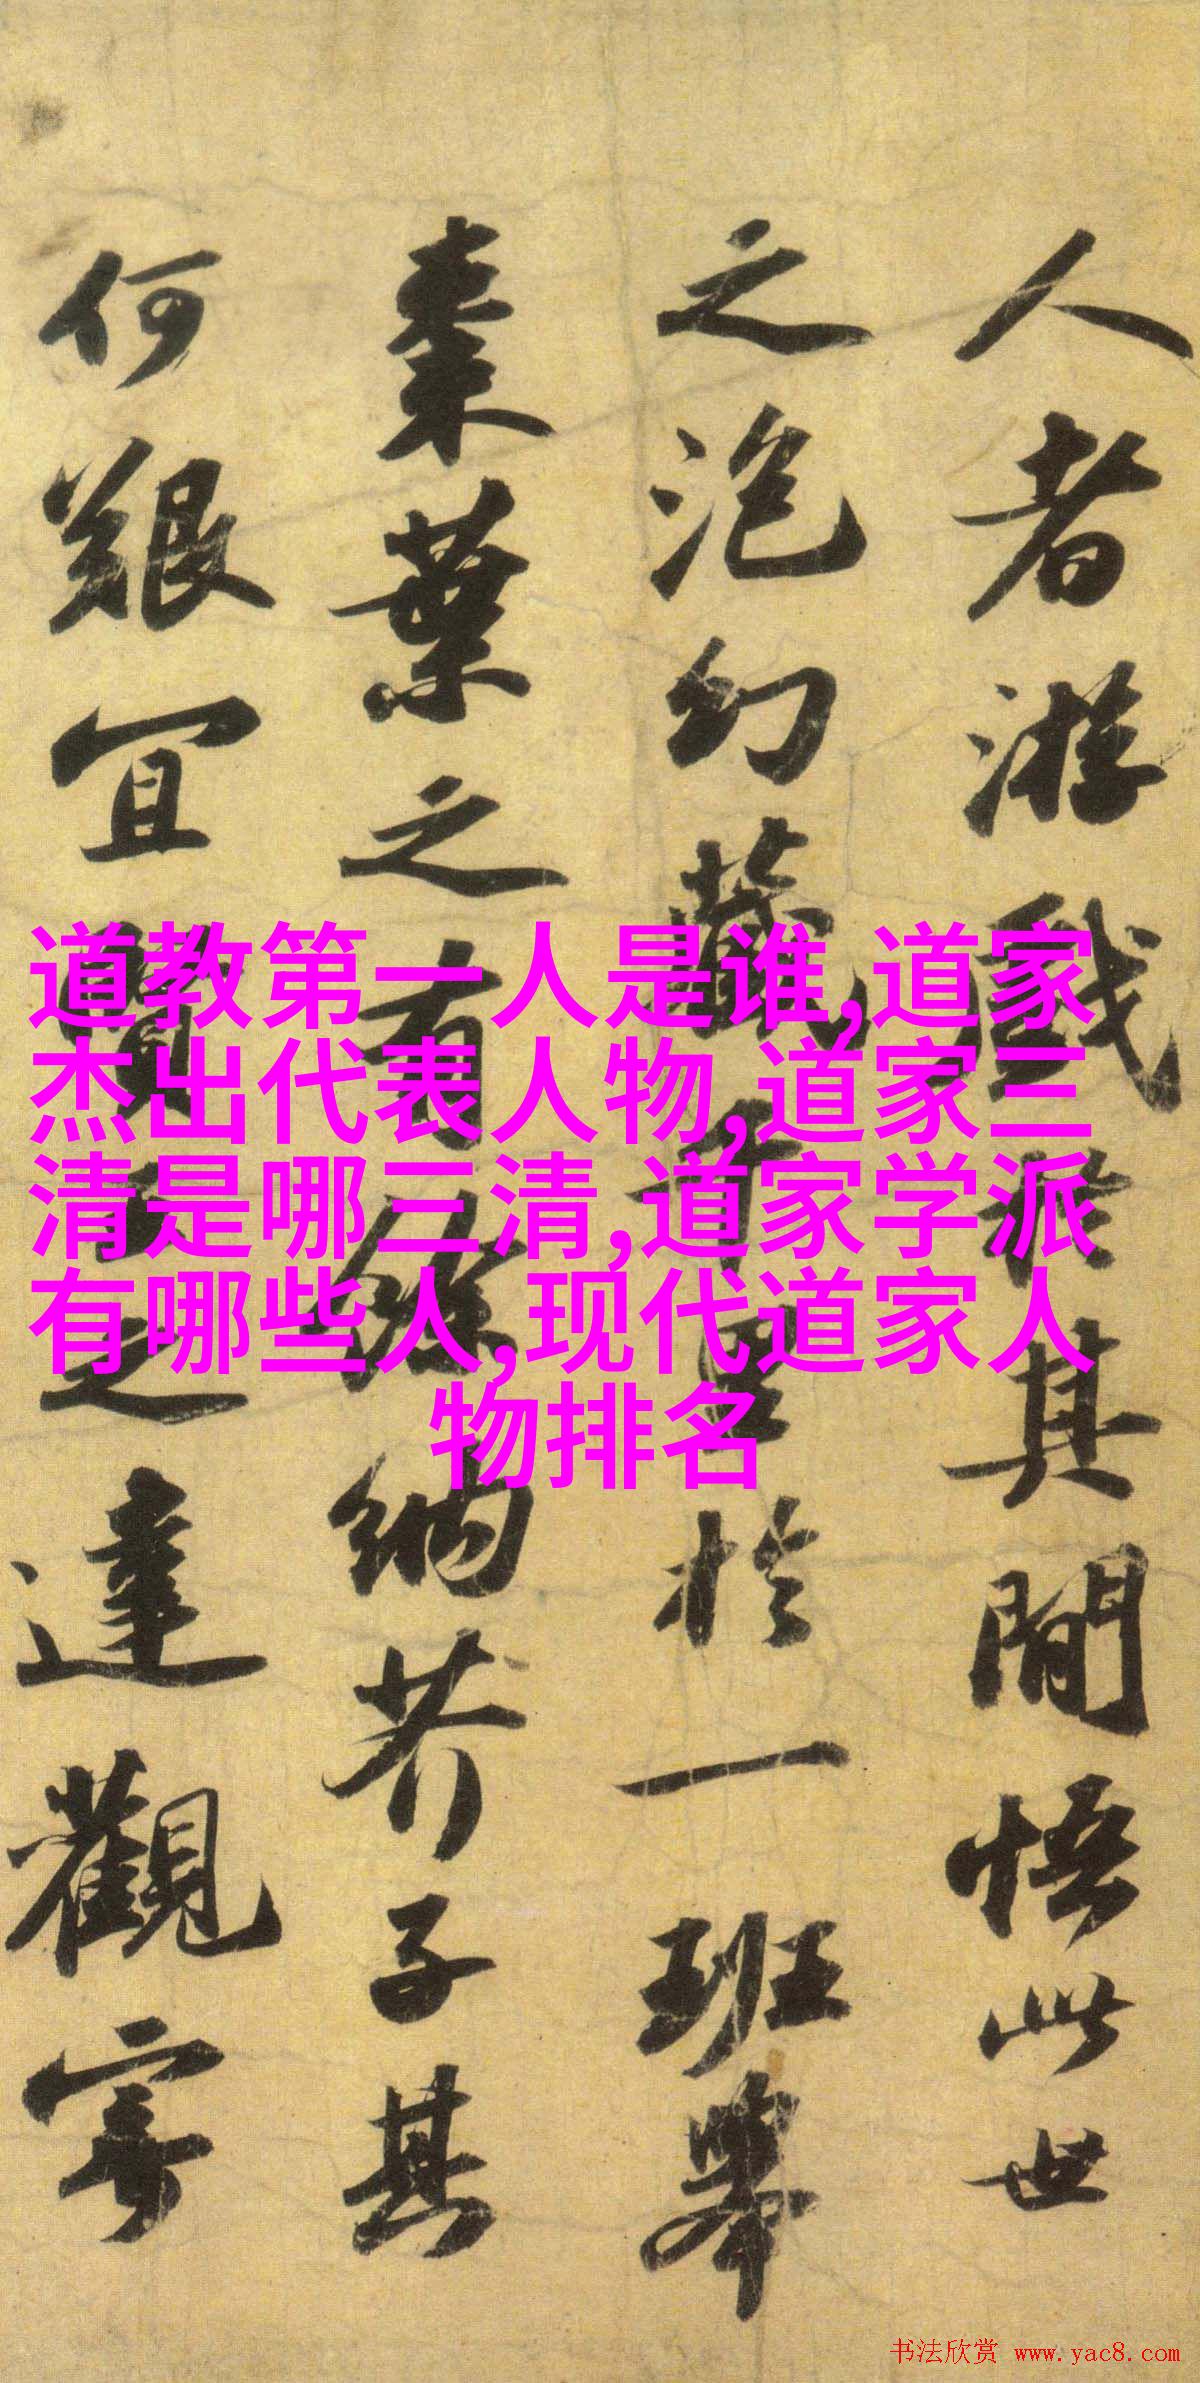 人者游戏於其間悟此世
之泡幻藏千里於一班举
棗葉之有餘納芥子其
何艱宜賢王之達觀寄
道教第一人是谁,道家
杰出代表人物,道家三
清是哪三清,道家学派
有哪些人,现代道家人
物排名
书法欣赏 www.yac8.com